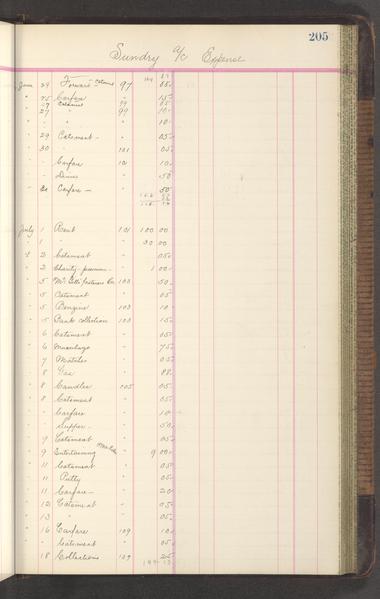 205
Sundry a/c Expense
June 24 Forward 97 05
25 Carfare " 15
27 " 99 10
" " " 10
" 29 Catsmeat " 05
" 30 " 101 05
" " Carfare 10
" " Dinner " 50
" 30 Carfare — 50
July 1 Rent 101 100 00
" 1 " " 30 00
" 2 Catsmeat " 05
" 2 Charity " 1 00
" 5 103 50
" 5 Catsmeat " 05
" 5 Benzine 103 10
" 5 Bank collection 103 15
" 6 Catsmeat " 05
" 6 " 75
" 7 Matches " 05
" 8 Gas " 88
" 8 Candles 105 05
" 8 Catsmeat " 05
" " Carfare " 10
" " Supper " 50
" 9 Catsmeat " 05
" 9 Entertaining " 9 00
" 11 Catsmeat " 05
11 Putty " 05
" 11 Carfare — " 20
" 12 Catsmeat " 05
" 13 " " 05
" 16 Carfare 109 10
" " Catsmeat " 05
" 18 Collections 109 25